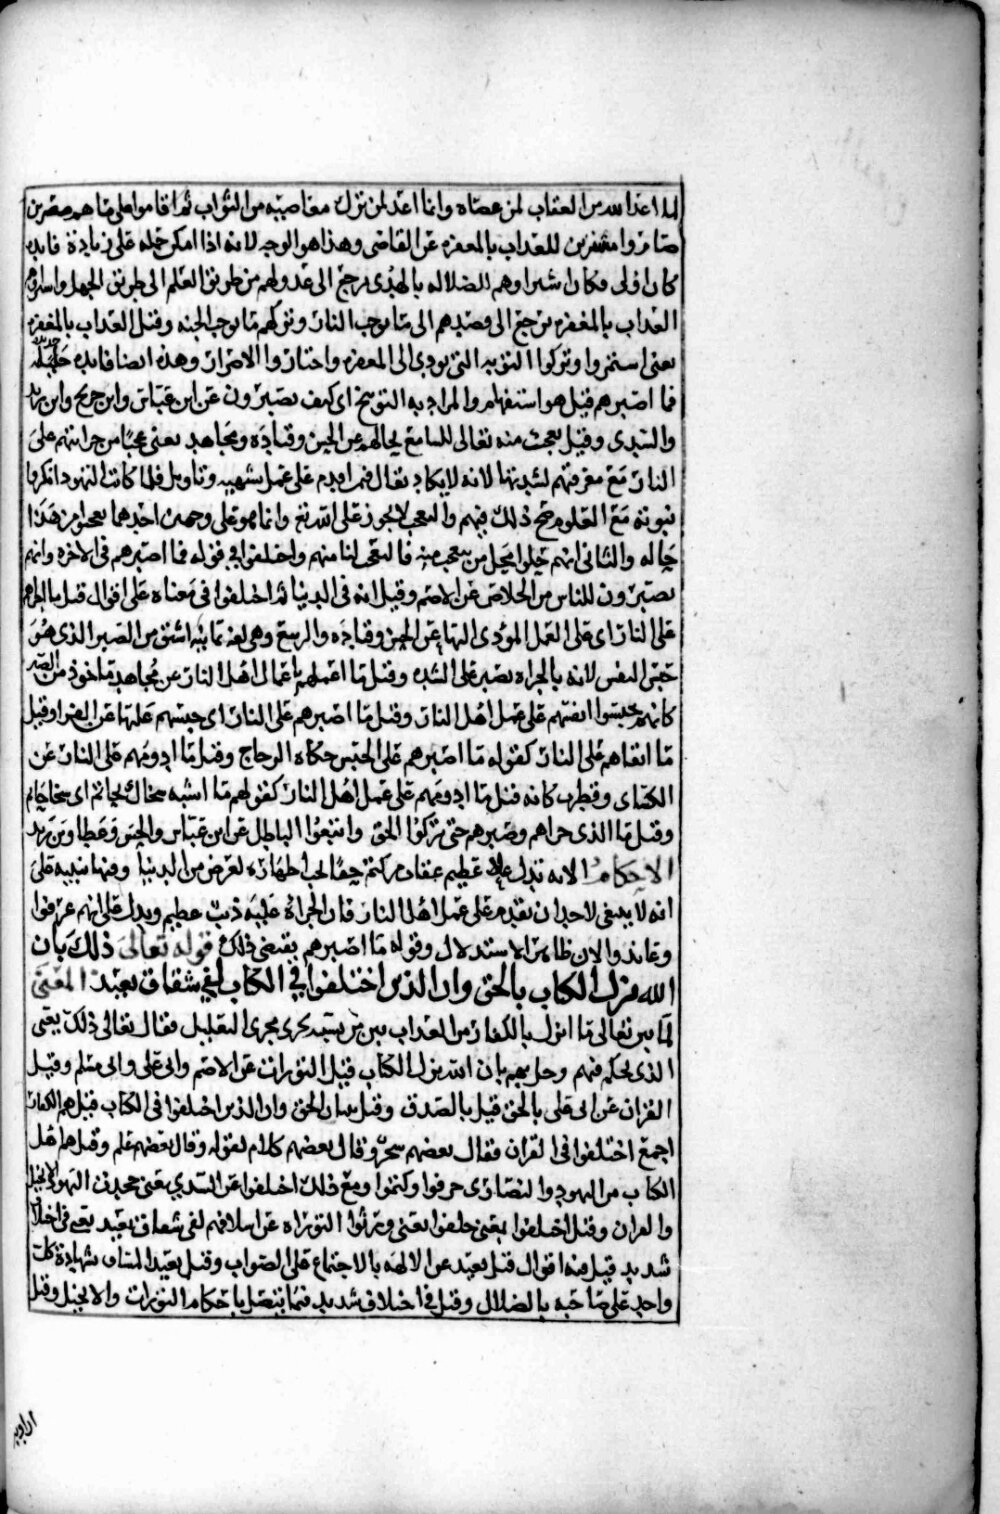 لما اعد الله من العقاب لمن عصاه وانما اعد لمن ترك معاصيه من الثواب ثم اقاموا على ما هم مصرين
صاروا مشترين للعذاب بالمغفرة عن القاضى وهذا هو الوجه لانه اذا امكن حمله على زيادة فايدة
كان اولى فكان اشتراوهم للضلاله بالهدى يرجع الى عدولهم من طريق العلم الى طريق الجهل واستراوهم
العذاب بالمغفرة يرجع الى قصدهم الى ما يوجب النار وتركهم ما يوجب الجنه وقيل العذاب بالمغفرة
يعنى استمروا وتركوا التوبه التى تودى الى المغفرة واختاروا الاصرار وهذه ايضا فايده
فما اصبرهم قيل هو استفهام والمراد به التوبيخ اى كيف تصبرون عن ابن عباس وابن جريج وابن زيد
والسدى وقيل تعجب منه تعالى للسامع بحالهم عن الحسن وقتادة ومجاهد يعنى عجبا من جراتهم على
النار مع معرفتهم لشدتها لانه لا يكاد يقال فيمن اقدم على عمل بشبهه وتاويل فلما كانت اليهود انكروا
نبوته مع العلوم صح ذلك فيهم والتعجب لا يجوز على الله تع وانما هو على وجهين احدهما تعجبوا من هذا
حاله والثانى انهم حلوا محل من يتعجب منه فالتعجب لنا منهم واختلفوا فى قوله فما اصبرهم فى الاخرة وانهم
تصبرون للناس من الخلاص عن الاصم وقيل انه فى الدنيا ثم اختلفوا فى معناه على اقوال قيل ما اجراهم
على النار اى على العمل المودى اليها عن الحسن وقتاده والربيع وهى لغة يمانيه اشتق من الصبر الذى هو
حبس النفس لانه بالجراه يصبر على الشده وقيل ما اعملهم باعمال اهل النار عن مجاهد ماخوذ من الصبر
كانهم حبسوا انفسهم على عمل اهل النار وقيل ما اصبرهم على النار اى حبسهم عليها عن الفرا وقيل
ما ابقاهم على النار كقوله ما اصبرهم على الحبس حكاه الزجاج وقيل ما ادومهم على النار عن
الكسائى وقطرب كانه قيل ما ادومهم على عمل اهل النار كقولهم ما اشبه سخاك بحاتم اى سخا حاتم
وقيل ما الذى جراهم وصبرهم حتى تركوا الحق واتبعوا الباطل عن ابن عباس والحسن وعطا وبن زيد
الاحكام الايه تدل على عظيم عقاب من كتم حقا يجب اظهاره لغرض من الدنيا وفيها تنبيه على
انه لا ينبغى لاحد ان يقدم على عمل اهل النار فان الجراة عليه ذنب عظيم ويدل على انهم عرفوا
وعاندوا لان ظاهر الاستدلال وقوله ما اصبرهم يقتضى ذلك قوله تعالى ذلك بان
الله نزل الكتاب بالحق وان الذين اختلفوا فى الكتاب لفى شقاق بعيد المعنى
لما بين تعالى ما انزل بالكفار من العذاب بين من بعد ما يجرى مجرى التعليل فقال تعالى ذلك يعنى
الذى لحكم فيهم وحل بهم بان الله نزل الكتاب قيل التورات عن الاصم وابى على وابى مسلم وقيل
القران عن ابى على بالحق قيل بالصدق وقيل ببيان الحق وان الذين اختلفوا فى الكتاب قيل هم الكفار
اجمع اختلفوا فى القران فقال بعضهم سحر وقال بعضهم كلام تقوله وقال بعضهم علم وقيل هم اهل
الكتاب من اليهود والنصارى حرفوا وكتموا ومع ذلك اختلفوا عن السدى يعنى جحدت اليهود الانجيل
والقران وقيل اختلفوا يعنى خلفوا يعنى ورثوا التوراه عن اسلافهم لفى شقاق بعيد يعنى فى اختلاف
شديد قيل فيه اقوال قيل بعيد عن الالفة بالاجتماع على الصواب وقيل بعيد الشقاق بشهادة كل
واحد على صاحبه بالضلال وقيل فى اختلاف شديد فيما يتصل باحكام التورات والانجيل وقيل